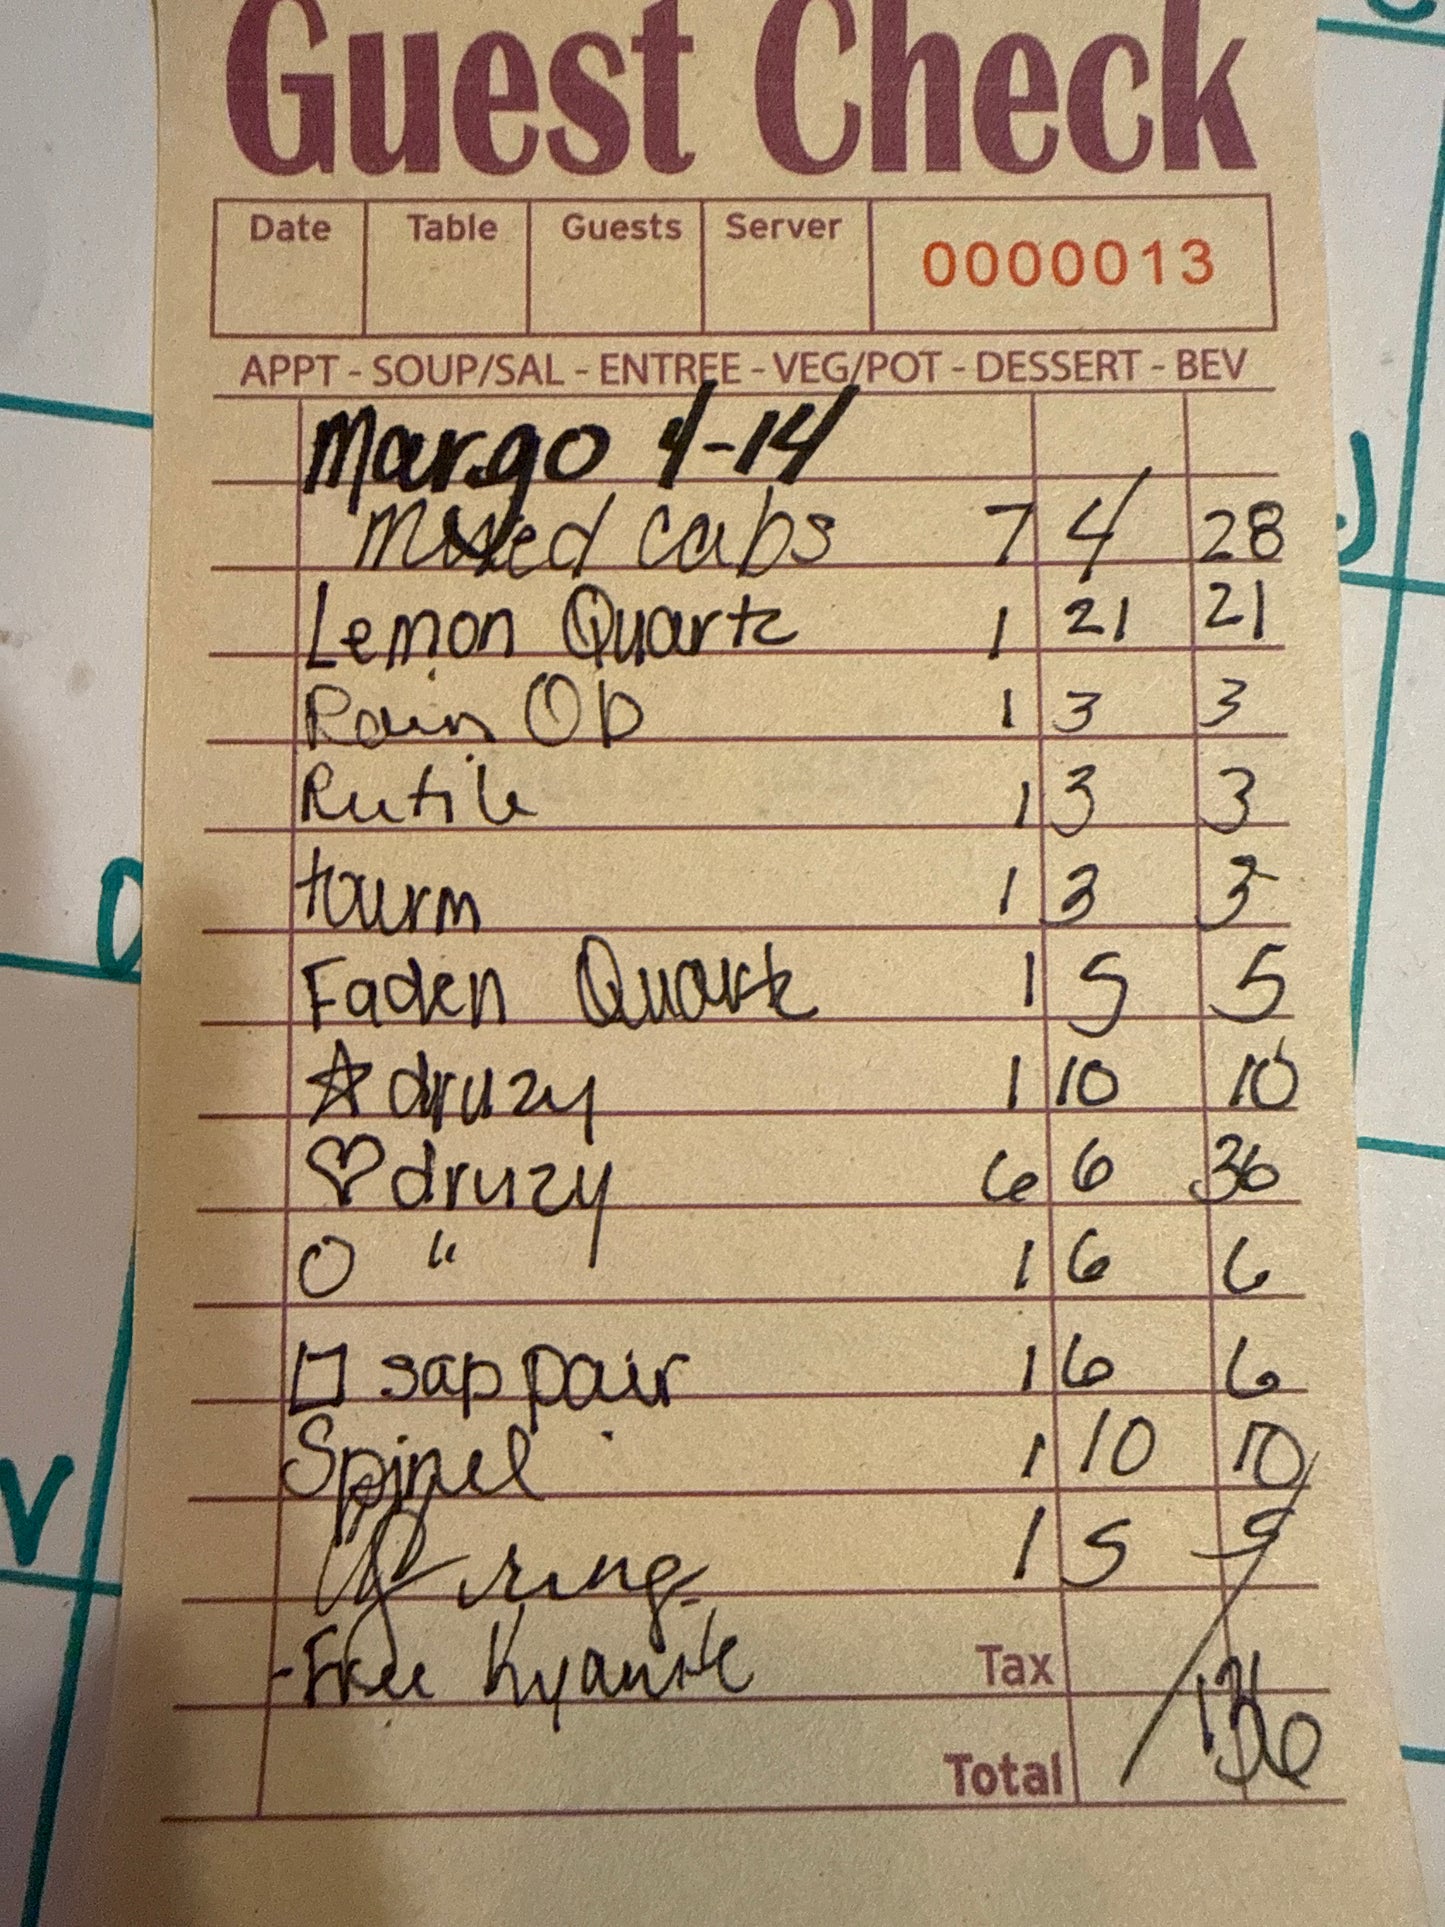 Guest Check
Date Table Guests Server 0000013
APPT - SOUP/SAL - ENTREE - VEG/POT - DESSERT - BEV
Margo 4-14
Mixed cabs 7 4 28
Lemon Quartz 1 21 21
Rain Ob 1 3 3
Rutile 1 3 3
tourm 1 3 3
Faden Quartz 1 5 5
☆ druzy 1 10 10
♡ druzy 6 6 36
O " 1 6 6
□ sap pair 1 6 6
Spinel 1 10 10
ring 1 5 5
- Free Kyanite Tax
Total 136